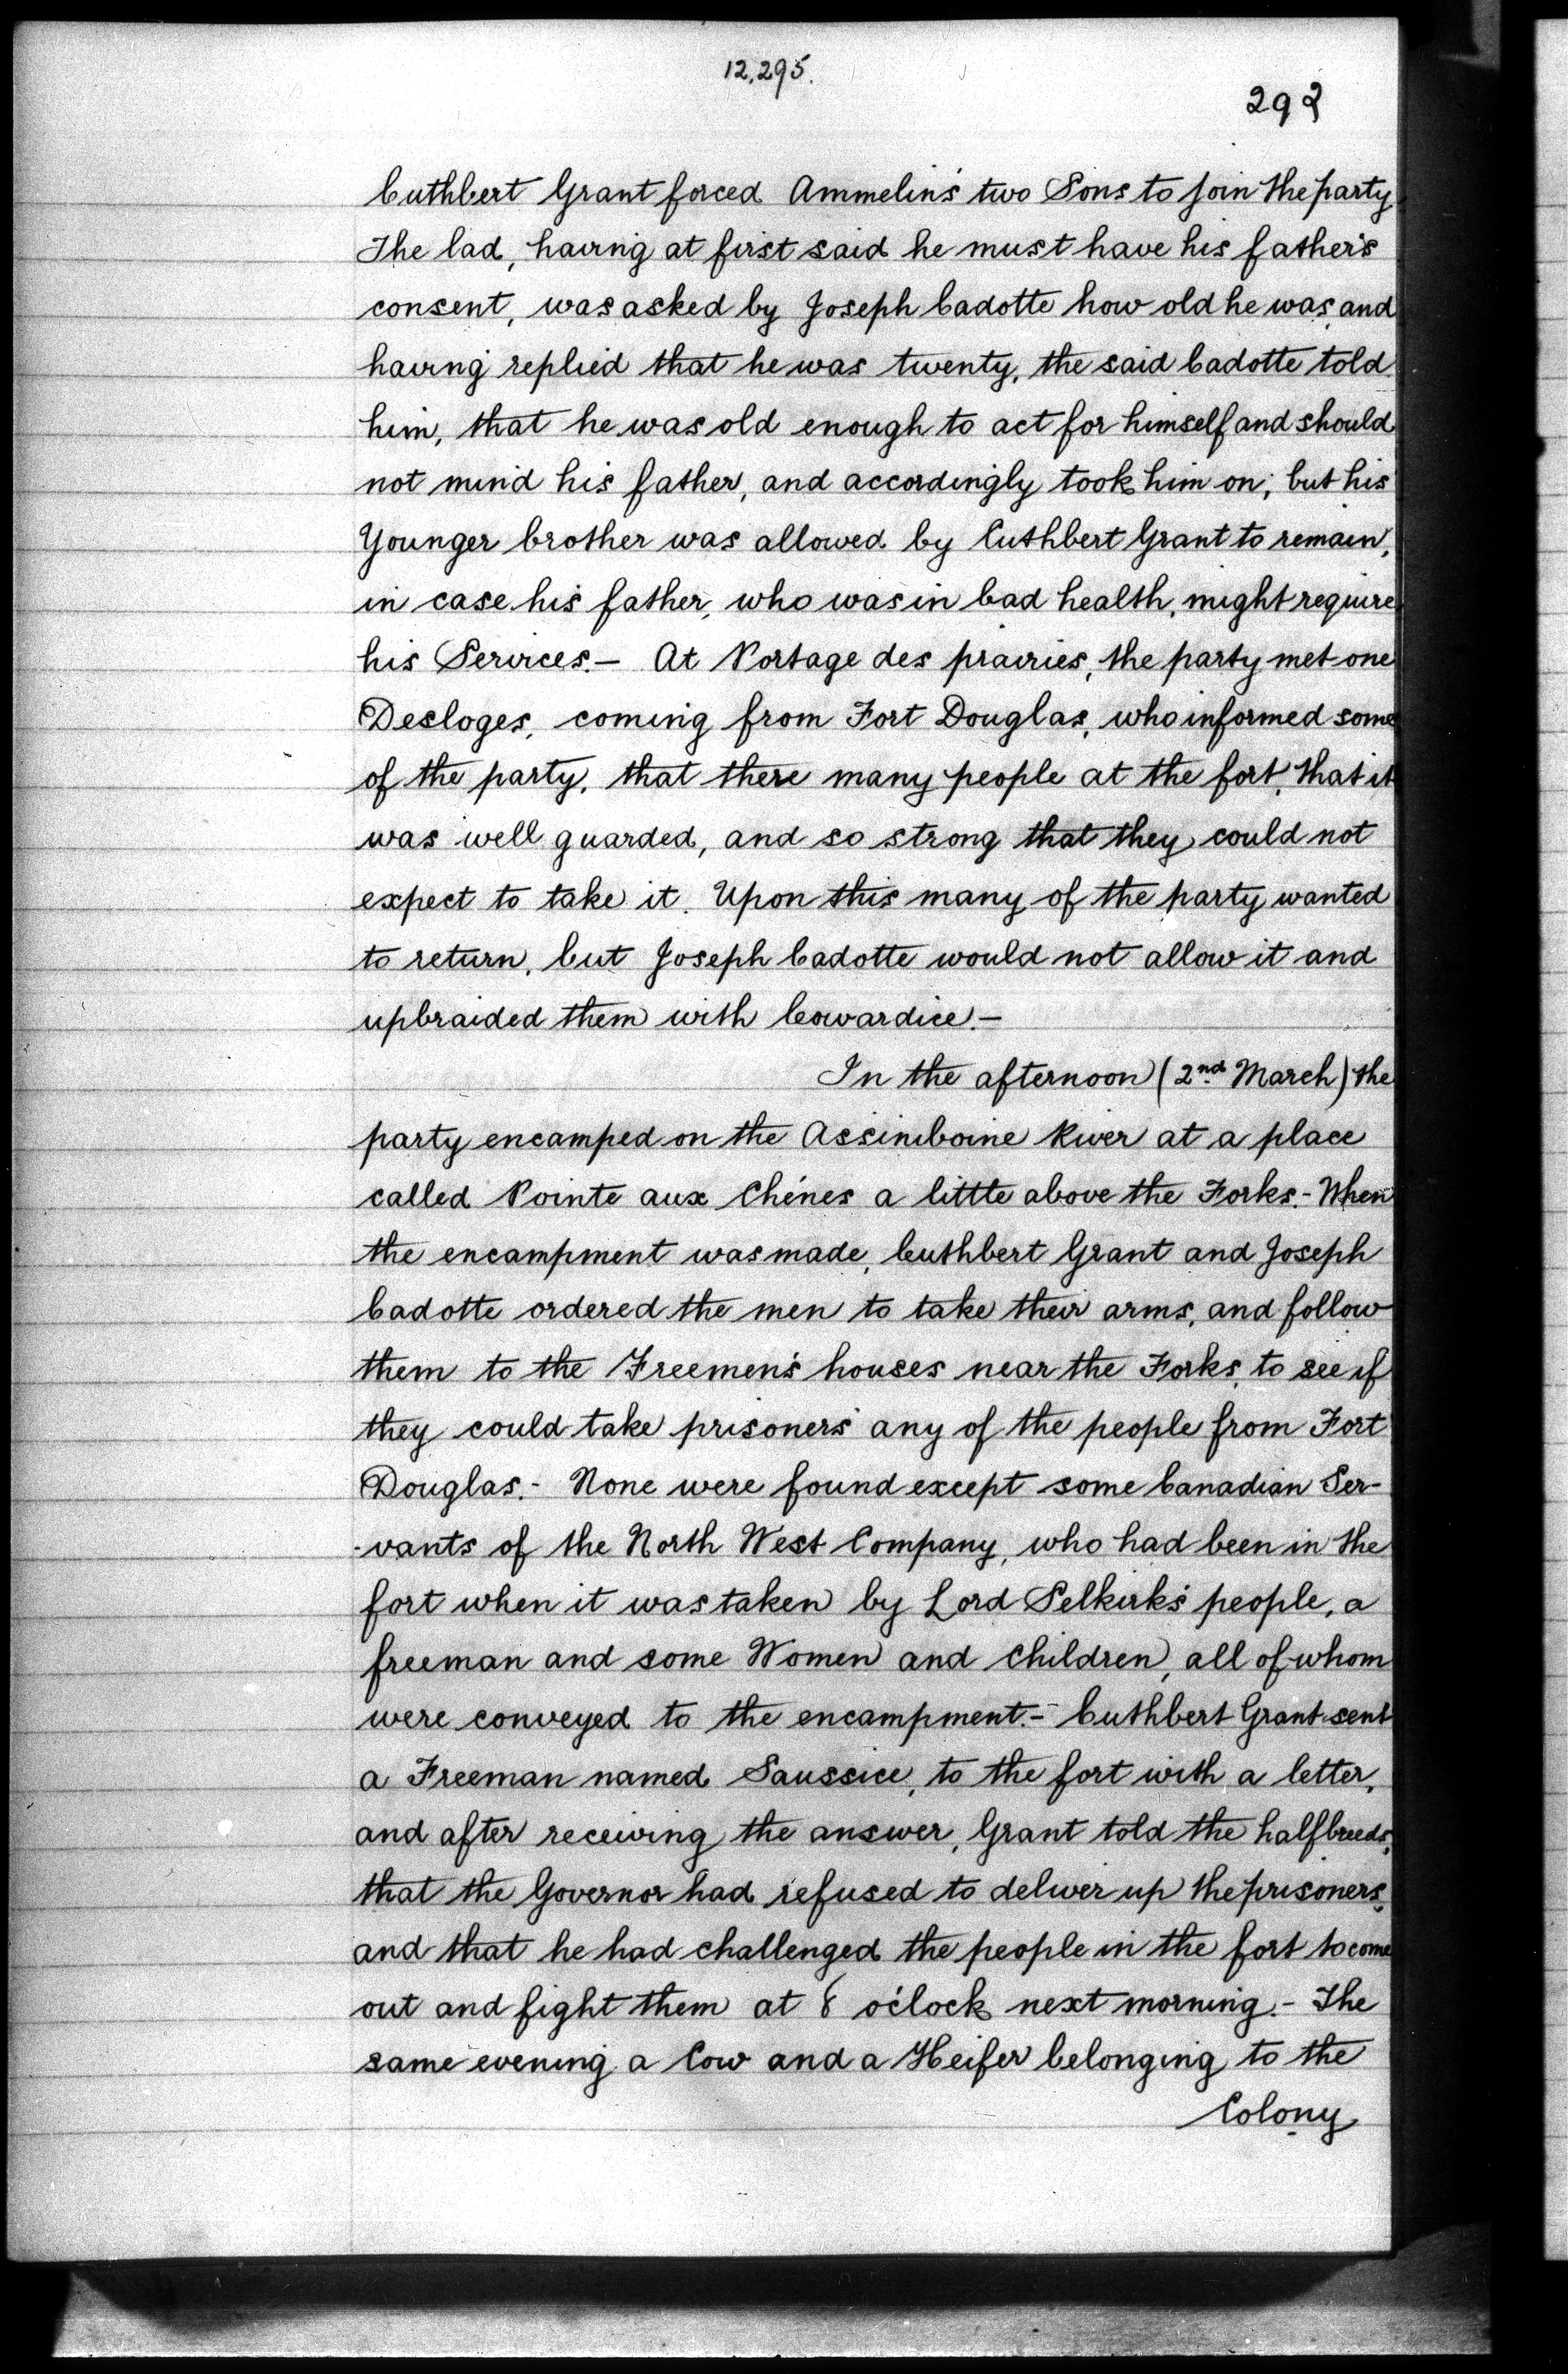 12,295.
292
Cuthbert Grant forced Ammelin's two Sons to join the party.
The lad, having at first said he must have his father's
consent, was asked by Joseph Cadotte how old he was, and
having replied that he was twenty, the said Cadotte told
him, that he was old enough to act for himself and should
not mind his father, and accordingly took him on; but his
Younger brother was allowed by Cuthbert Grant to remain,
in case his father, who was in bad health, might require
his Services.— At Portage des prairies, the party met one
Desloges, coming from Fort Douglas, who informed some
of the party, that there many people at the fort, that it
was well guarded, and so strong that they could not
expect to take it. Upon this many of the party wanted
to return, but Joseph Cadotte would not allow it and
upbraided them with Cowardice.—
In the afternoon (2nd March) the
party encamped on the Assiniboine River at a place
called Pointe aux Chénes a little above the Forks.- When
the encampment was made, Cuthbert Grant and Joseph
Cadotte ordered the men to take their arms, and follow
them to the Freemen's houses near the Forks, to see if
they could take prisoners any of the people from Fort
Douglas.- None were found except some Canadian Ser-
-vants of the North West Company, who had been in the
fort when it was taken by Lord Selkirk's people, a
freeman and some Women and Children, all of whom
were conveyed to the encampment.- Cuthbert Grant sent
a Freeman named Saussice, to the fort with a letter,
and after receiving the answer, Grant told the halfbreeds,
that the Governor had refused to deliver up the prisoners,
and that he had challenged the people in the fort to come
out and fight them at 8 o'clock next morning.- The
same evening a Cow and a Heifer belonging to the
Colony